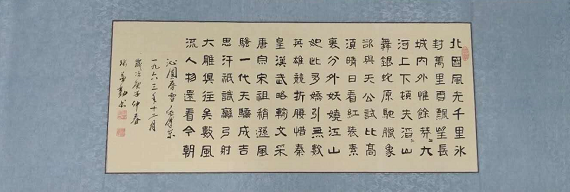 北國風光千里冰
封萬里雪飄望長
城内外惟餘莽〻大
河上下頓失滔〻山
舞銀蛇原馳臘象
欲與天公試比高
須晴日看紅裝素
裹分外妖嬈江山
如此多嬌引無數
英雄競折腰惜秦
皇漢武略輸文采
唐宗宋祖稍遜風
騷一代天驕成吉
思汗祇識彎弓射
大雕俱往矣數風
流人物還看今朝
沁園春雪 毛澤東
一九六三年十二月
歲次庚子仲春